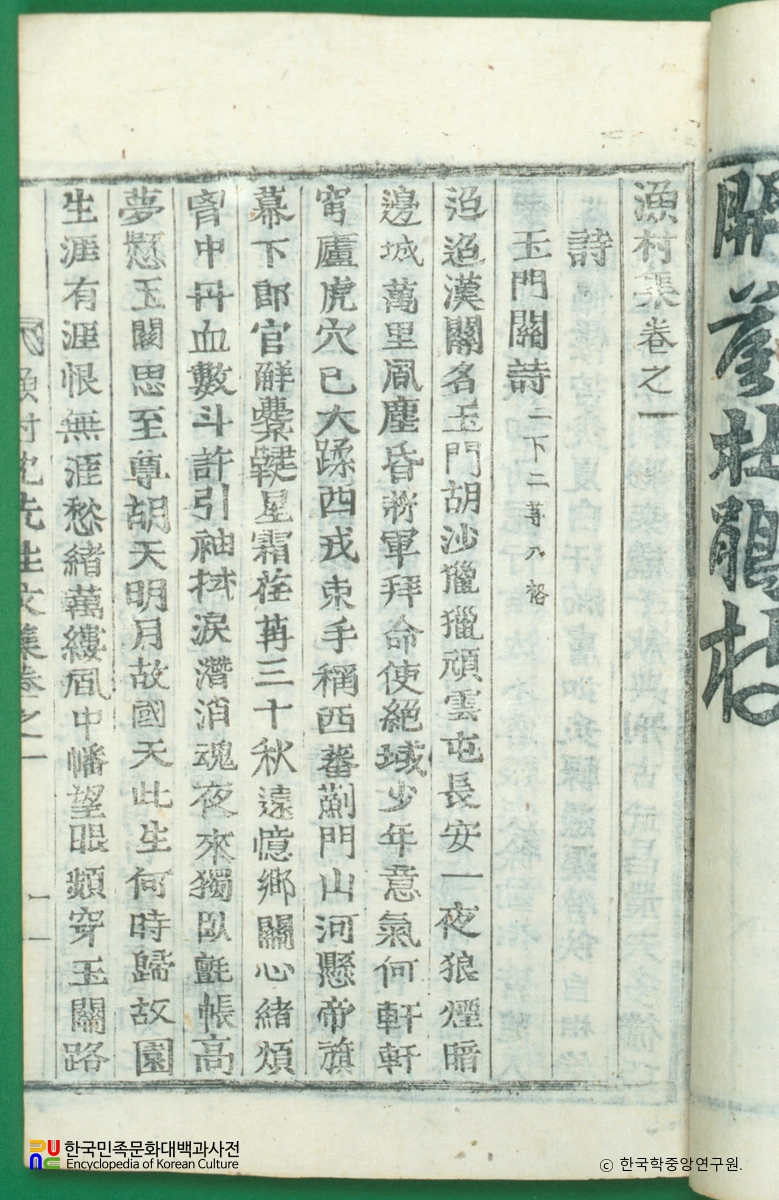 漁村集卷之一
詩
玉門關詩 二下二等
迢迢漢關名玉門胡沙獵獵頑雲屯長安一夜狼煙暗
邊城萬里風塵昏將軍拜命使絕域少年意氣何軒軒
穹廬虎穴已大蹂西戎束手稱西蕃薊門山河懸帝旗
幕下郎官解櫜鞬星霜荏苒三十秋遠憶鄉關心緒煩
胷中丹血數斗許引袖拭淚潛消魂夜來獨臥氈帳高
夢懸玉關思至尊胡天明月故國天此生何時歸故園
生涯有涯恨無涯愁緒萬縷風中幡望眼頻穿玉關路
漁村沈先生文集卷之一 一
한국민족문화대백과사전
Encyclopedia of Korean Culture
ⓒ 한국학중앙연구원.